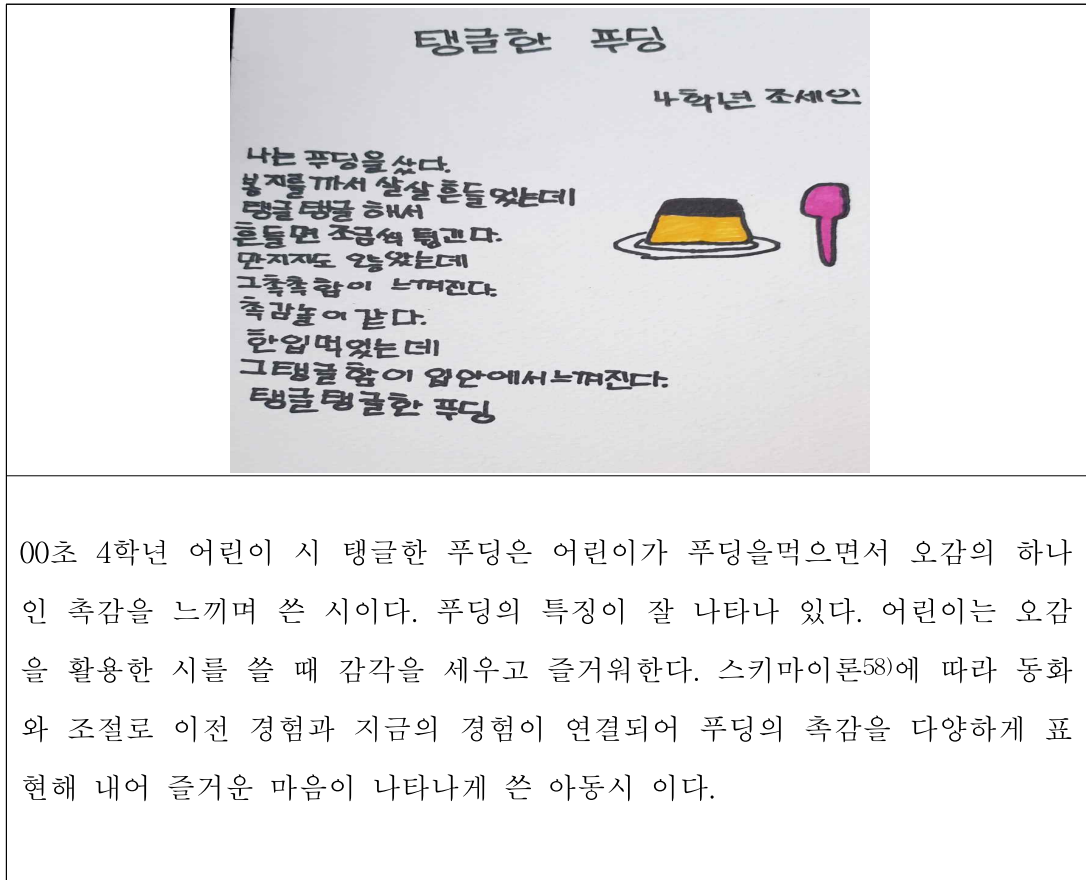 탱글한 푸딩
4학년 조세인
나는 푸딩을 샀다.
봉지를 까서 살살 흔들었는데
탱글탱글 해서
흔들면 조금씩 튕긴다.
만지지도 않았는데
그축축함이 느껴진다.
촉감놀이 같다.
한입먹었는데
그탱글함이 입안에서느껴진다.
탱글탱글한 푸딩
00초 4학년 어린이 시 탱글한 푸딩은 어린이가 푸딩을먹으면서 오감의 하나
인 촉감을 느끼며 쓴 시이다. 푸딩의 특징이 잘 나타나 있다. 어린이는 오감
을 활용한 시를 쓸 때 감각을 세우고 즐거워한다. 스키마이론58)에 따라 동화
와 조절로 이전 경험과 지금의 경험이 연결되어 푸딩의 촉감을 다양하게 표
현해 내어 즐거운 마음이 나타나게 쓴 아동시 이다.